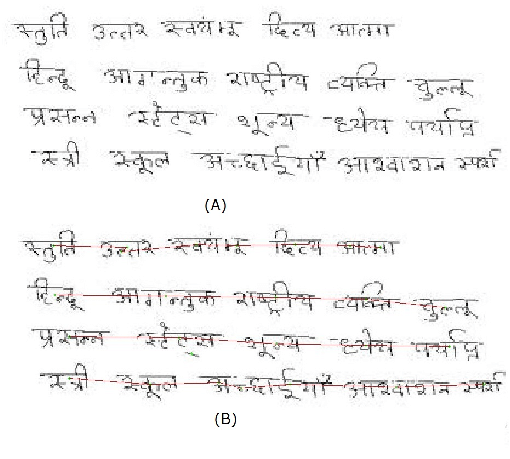 स्तुति उत्तर स्वयंभू दित्य आत्मा
हिन्दू आगन्तुक राष्ट्रीय व्यक्ति चुल्लू
प्रसन्न स्टेटस शून्य ध्येय पर्याप्त
स्त्री स्कूल अच्छाईयाँ आश्वासन स्पर्श
(A)
स्तुति उत्तर स्वयंभू दित्य आत्मा
हिन्दू आगन्तुक राष्ट्रीय व्यक्ति चुल्लू
प्रसन्न स्टेटस शून्य ध्येय पर्याप्त
स्त्री स्कूल अच्छाईयाँ आश्वासन स्पर्श
(B)